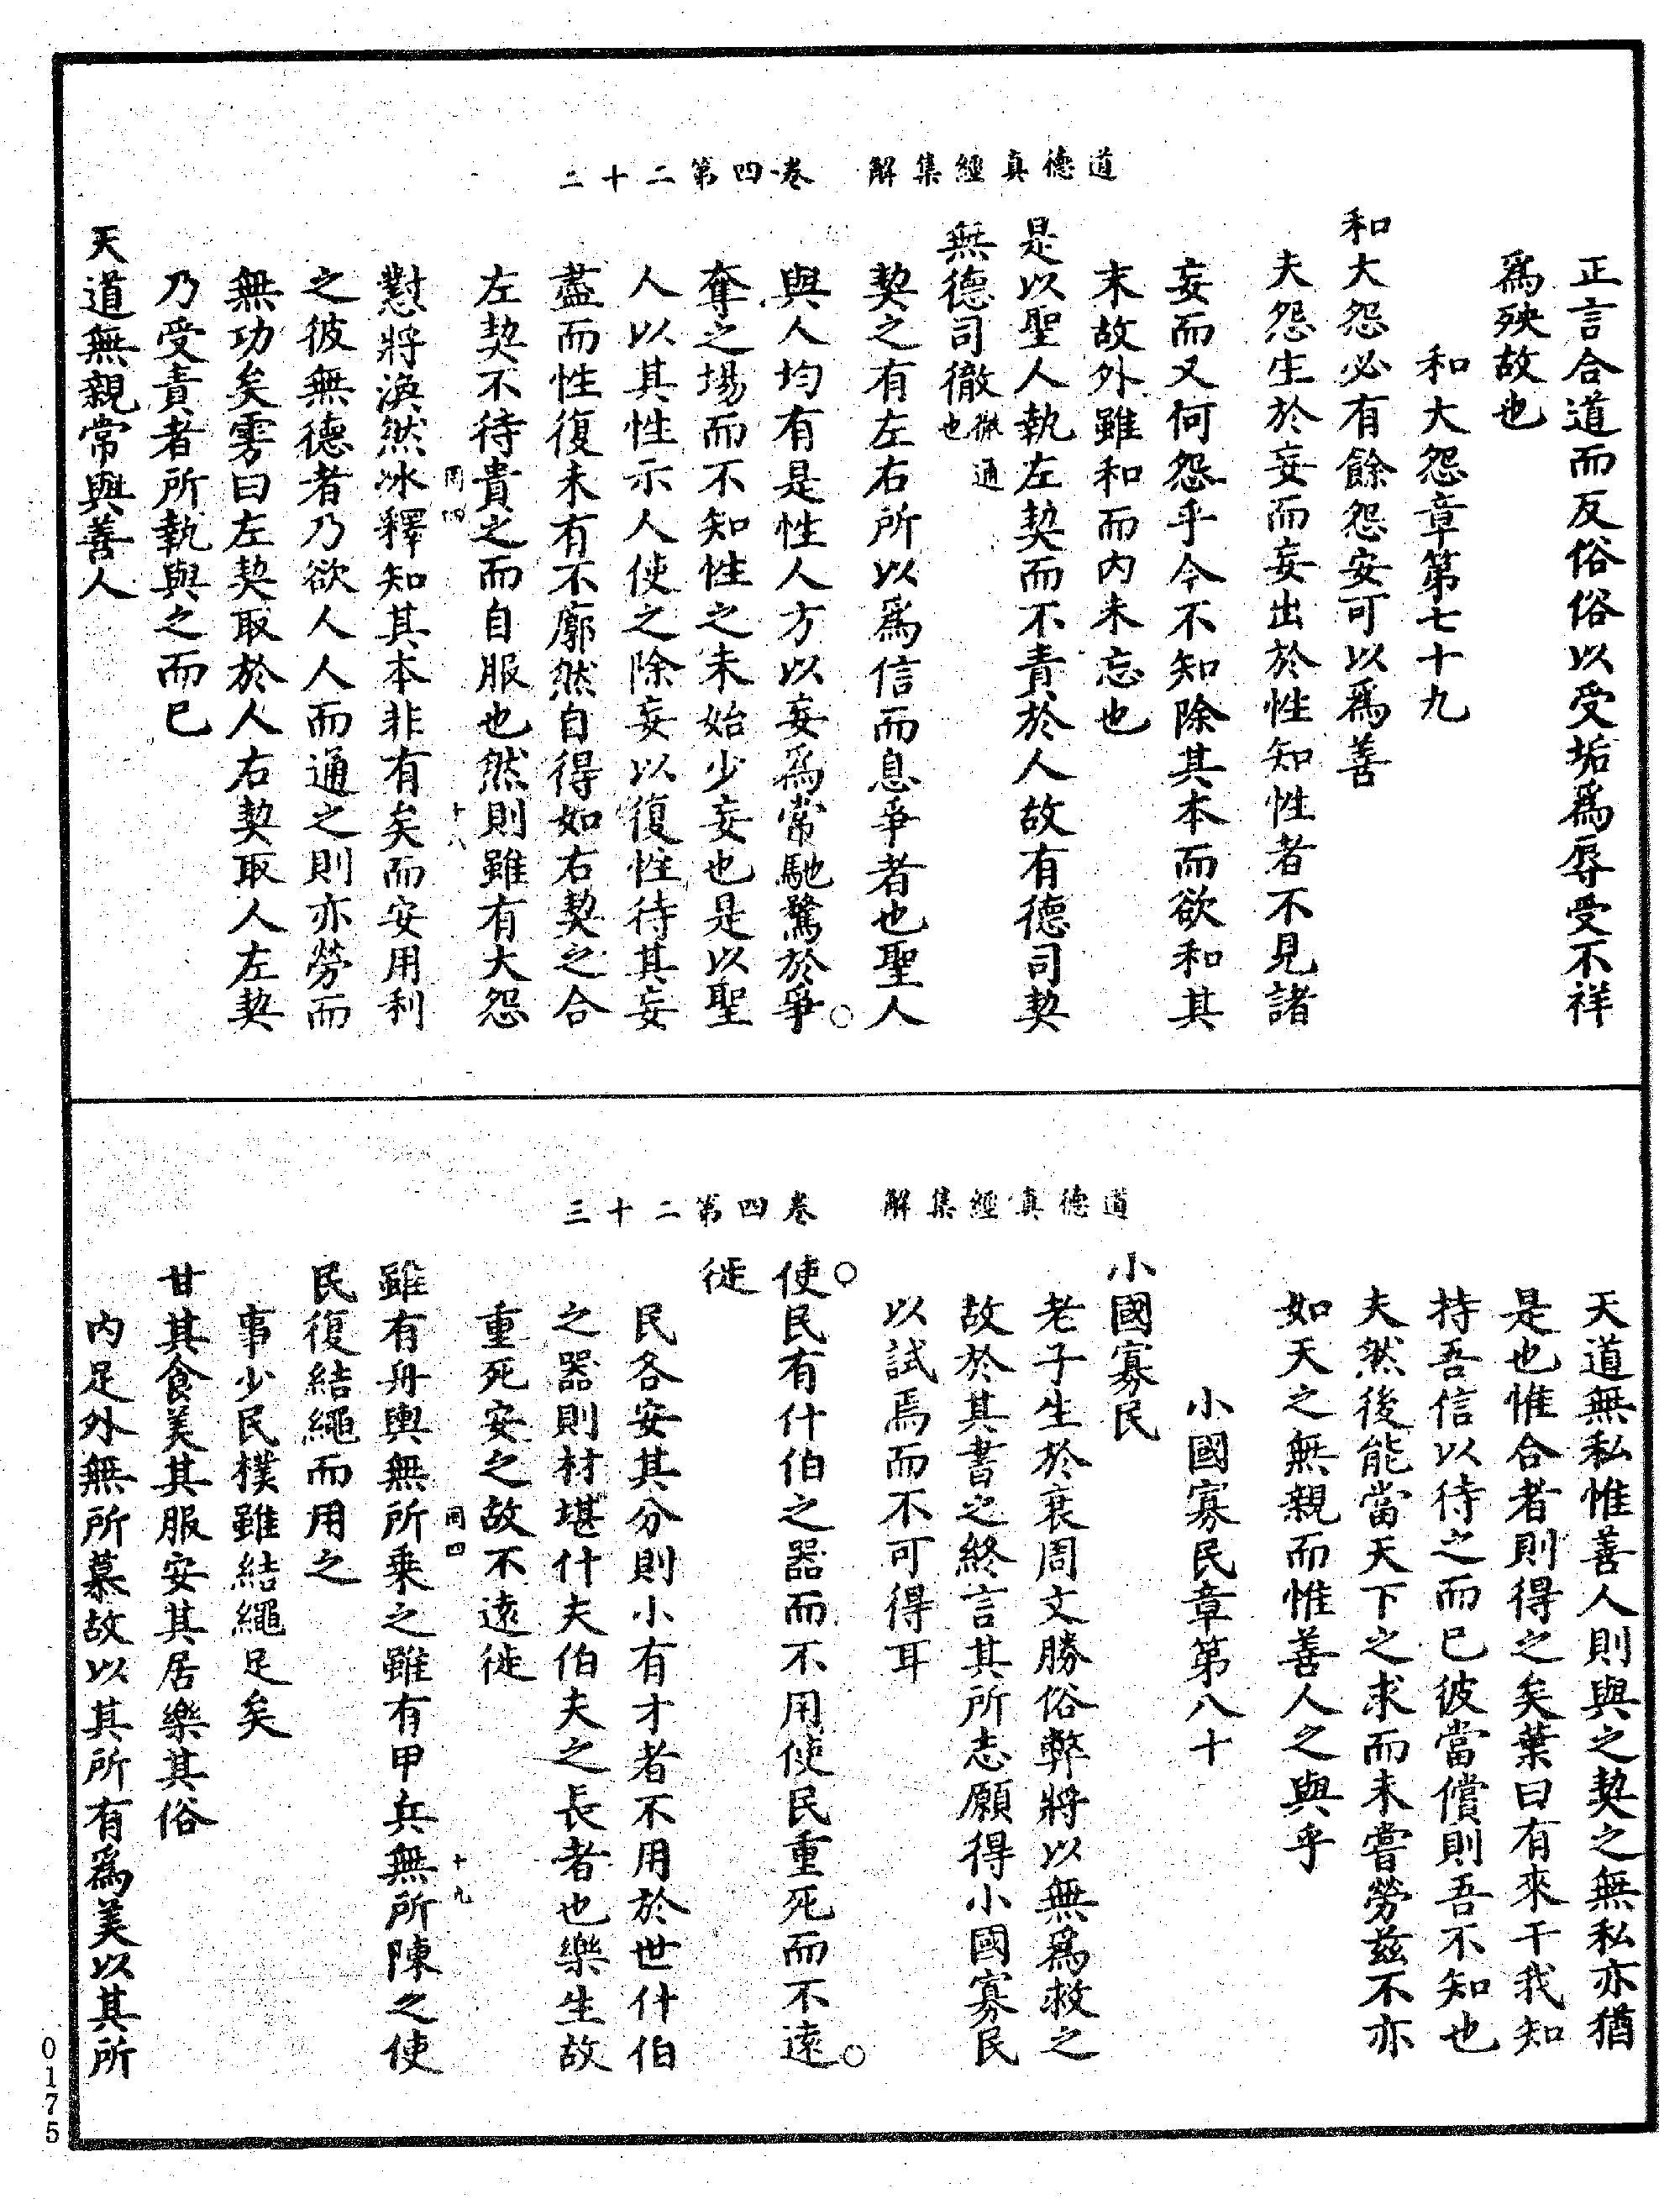 道德真經集解　卷四第二十二
正言合道而反俗俗以受垢爲辱受不祥
爲殃故也
和大怨章第七十九
和大怨必有餘怨安可以爲善
夫怨生於妄而妄出於性知性者不見諸
妄而又何怨乎今不知除其本而欲和其
末故外雖和而內未忘也
是以聖人執左契而不責於人故有德司契
無德司徹徹通也
契之有左右所以爲信而息爭者也聖人
與人均有是性人方以妄爲常馳騖於爭
奪之場而不知性之未始少妄也是以聖
人以其性示人使之除妄以復性待其妄
盡而性復未有不廓然自得如右契之合
左契不待責之而自服也然則雖有大怨
罔四　十八
懟將渙然冰釋知其本非有矣而安用利
之彼無德者乃欲人人而通之則亦勞而
無功矣雱曰左契取於人右契取人左契
乃受責者所執與之而已
天道無親常與善人
道德真經集解　卷四第二十三
天道無私惟善人則與之契之無私亦猶
是也惟合者則得之矣葉曰有來干我知
持吾信以待之而已彼當償則吾不知也
夫然後能當天下之求而未嘗勞茲不亦
如天之無親而惟善人之與乎
小國寡民章第八十
小國寡民
老子生於衰周文勝俗弊將以無爲救之
故於其書之終言其所志願得小國寡民
以試焉而不可得耳
使民有什伯之器而不用使民重死而不遠
徙
民各安其分則小有才者不用於世什伯
之器則材堪什夫伯夫之長者也樂生故
重死安之故不遠徙
罔四　十九
雖有舟輿無所乘之雖有甲兵無所陳之使
民復結繩而用之
事少民樸雖結繩足矣
甘其食美其服安其居樂其俗
內足外無所慕故以其所有爲美以其所
0175